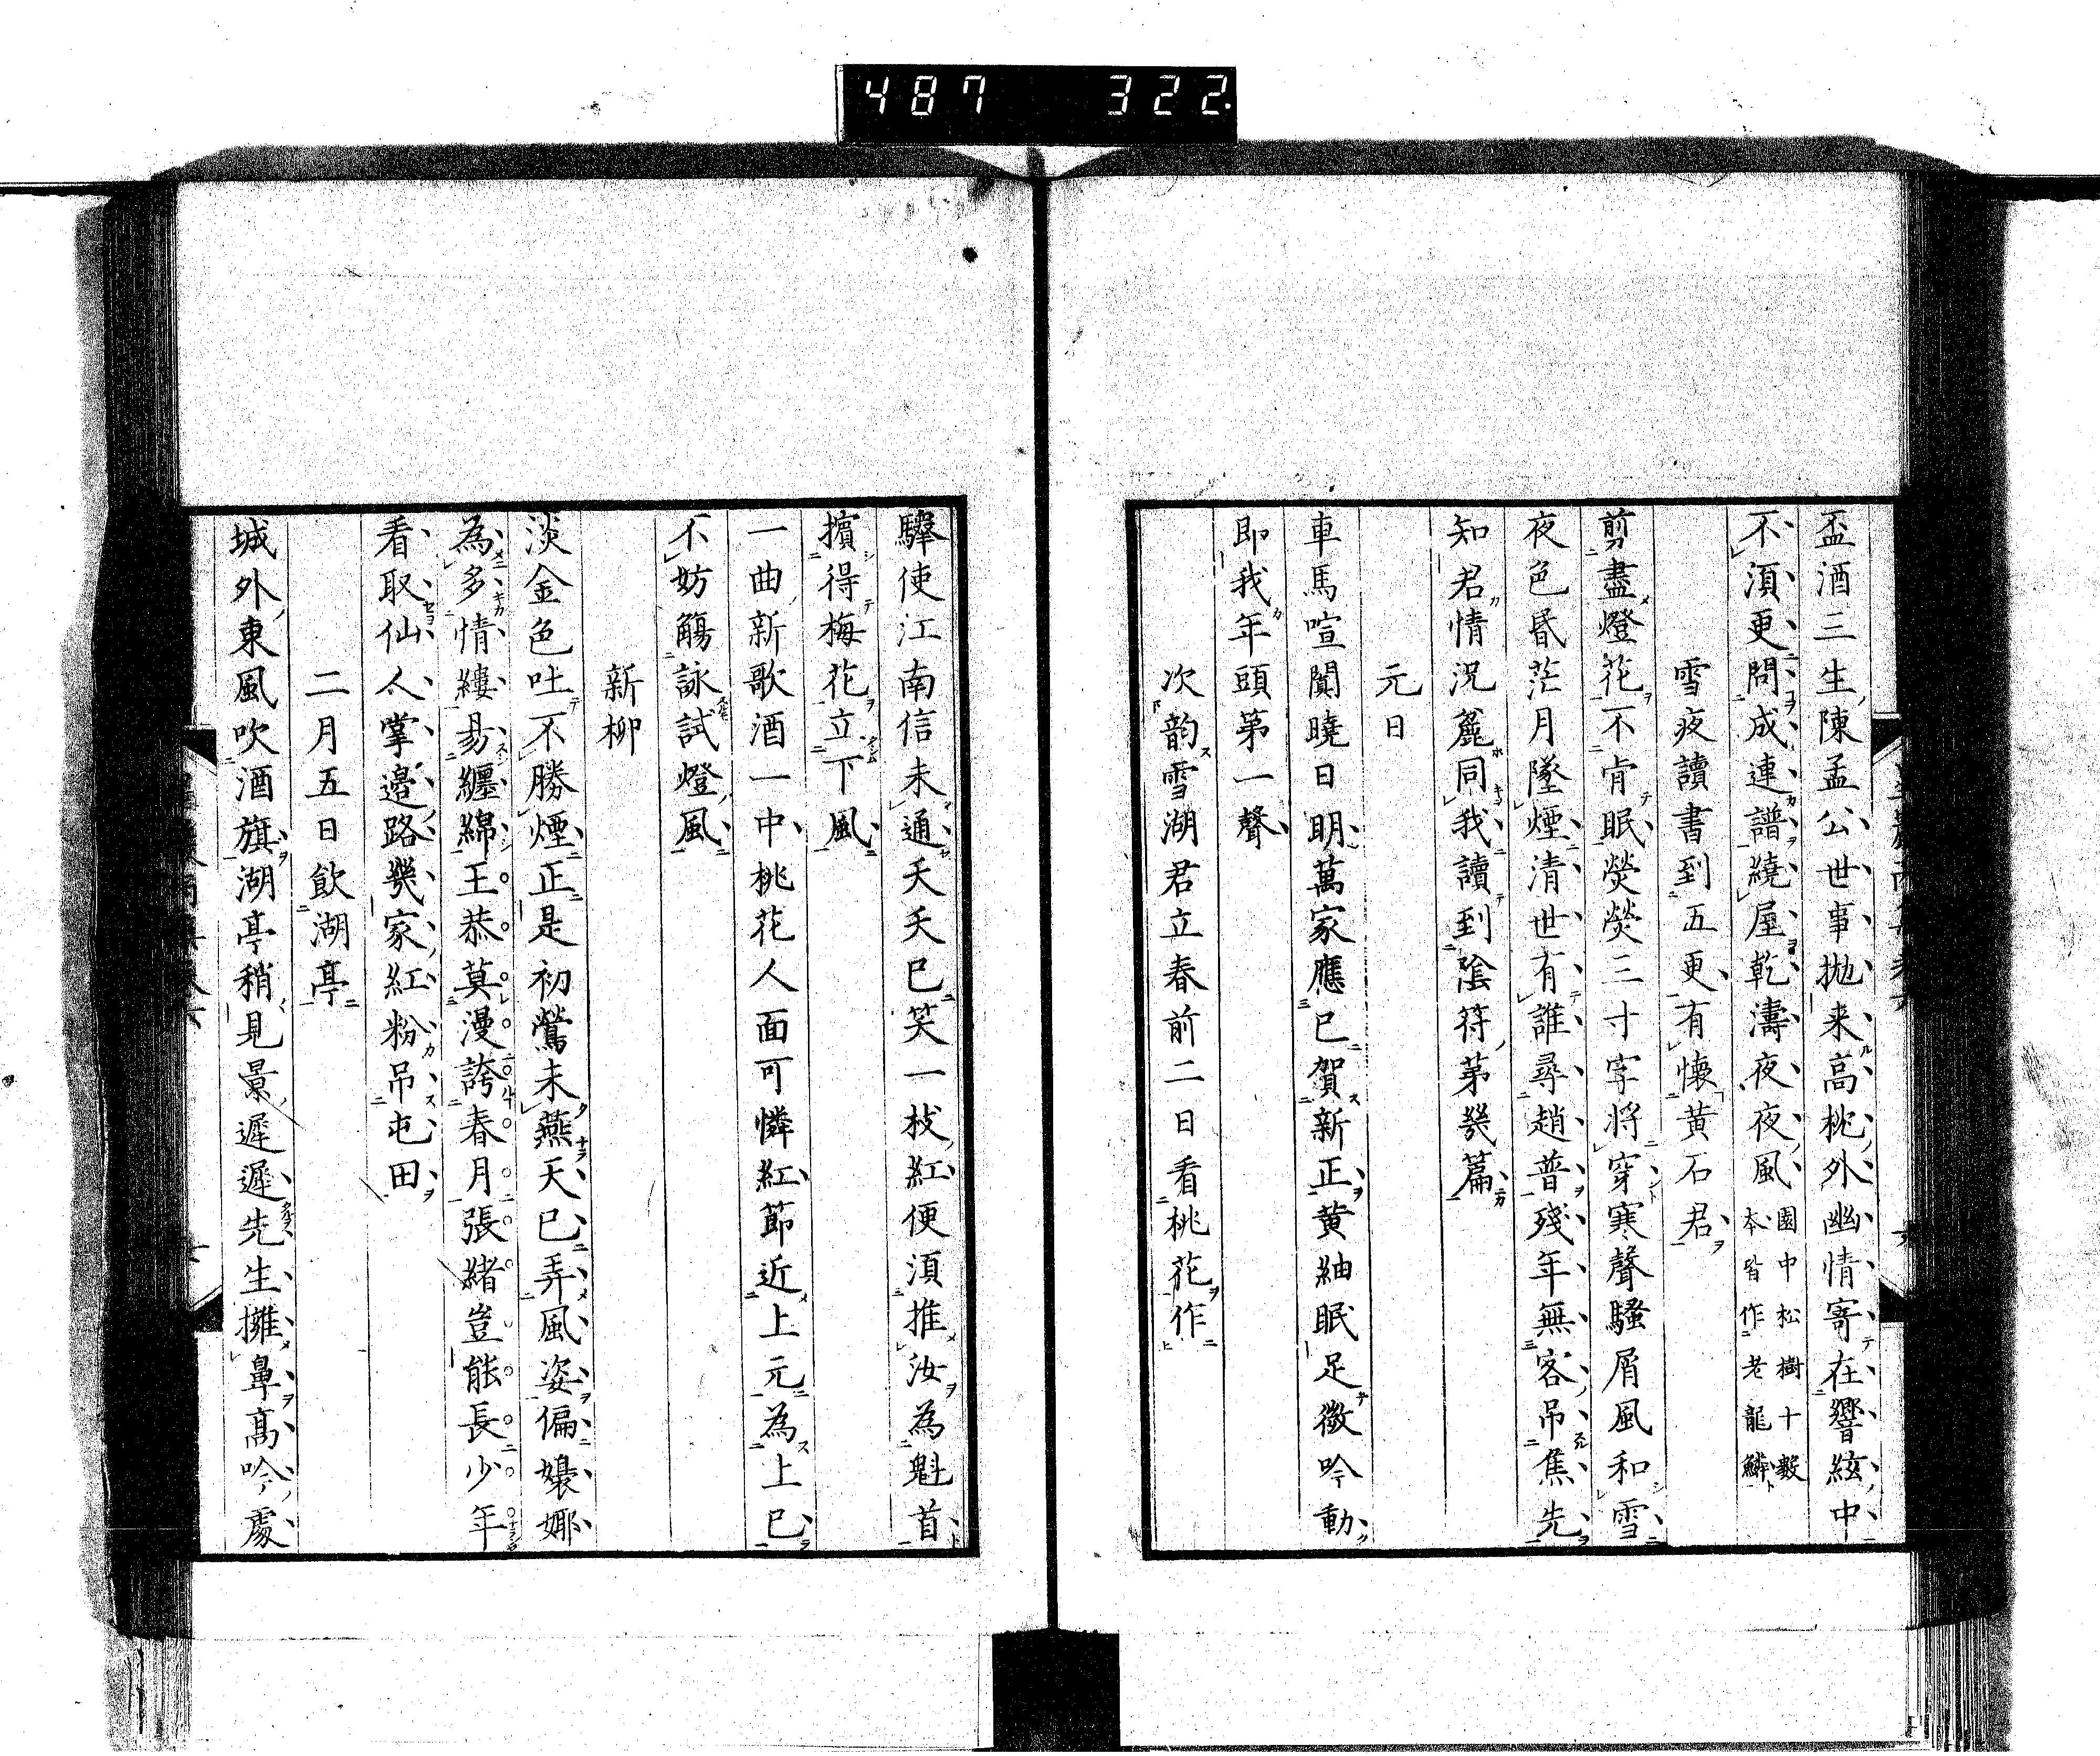 487 322
盃酒三生陳孟公世事拋来高桃外幽情寄在響絃中
不湏更問成連譜繞屋乾濤夜夜風 園中松樹十數本皆作老龍鱗
雪夜讀書到五更有懷黃石君
剪盡燈花不肯眠熒熒三寸字將穿寒聲騷屑風和雪
夜色昏茫月墜煙清世有誰尋趙普殘年無客吊焦先
知君情況麄同我讀到陰符第幾篇
元日
車馬喧闐曉日明萬家應已賀新正黃紬眠足微吟動
即我年頭第一聲
次韵雪湖君立春前二日看桃花作
驛使江南信未通夭夭已笑一枝紅便湏推汝為魁首
擯得梅花立下風
一曲新歌酒一中桃花人面可憐紅節近上元為上巳
不妨觴詠試燈風
新柳
淡金色吐不勝煙正是初鶯未燕天已弄風姿偏嬝娜
為多情縷易纏綿王恭莫漫誇春月張緒豈能長少年
看取仙人掌邉路幾家紅粉吊屯田
二月五日飲湖亭
城外東風吹酒旗湖亭稍見景遲遲先生擁鼻高吟處